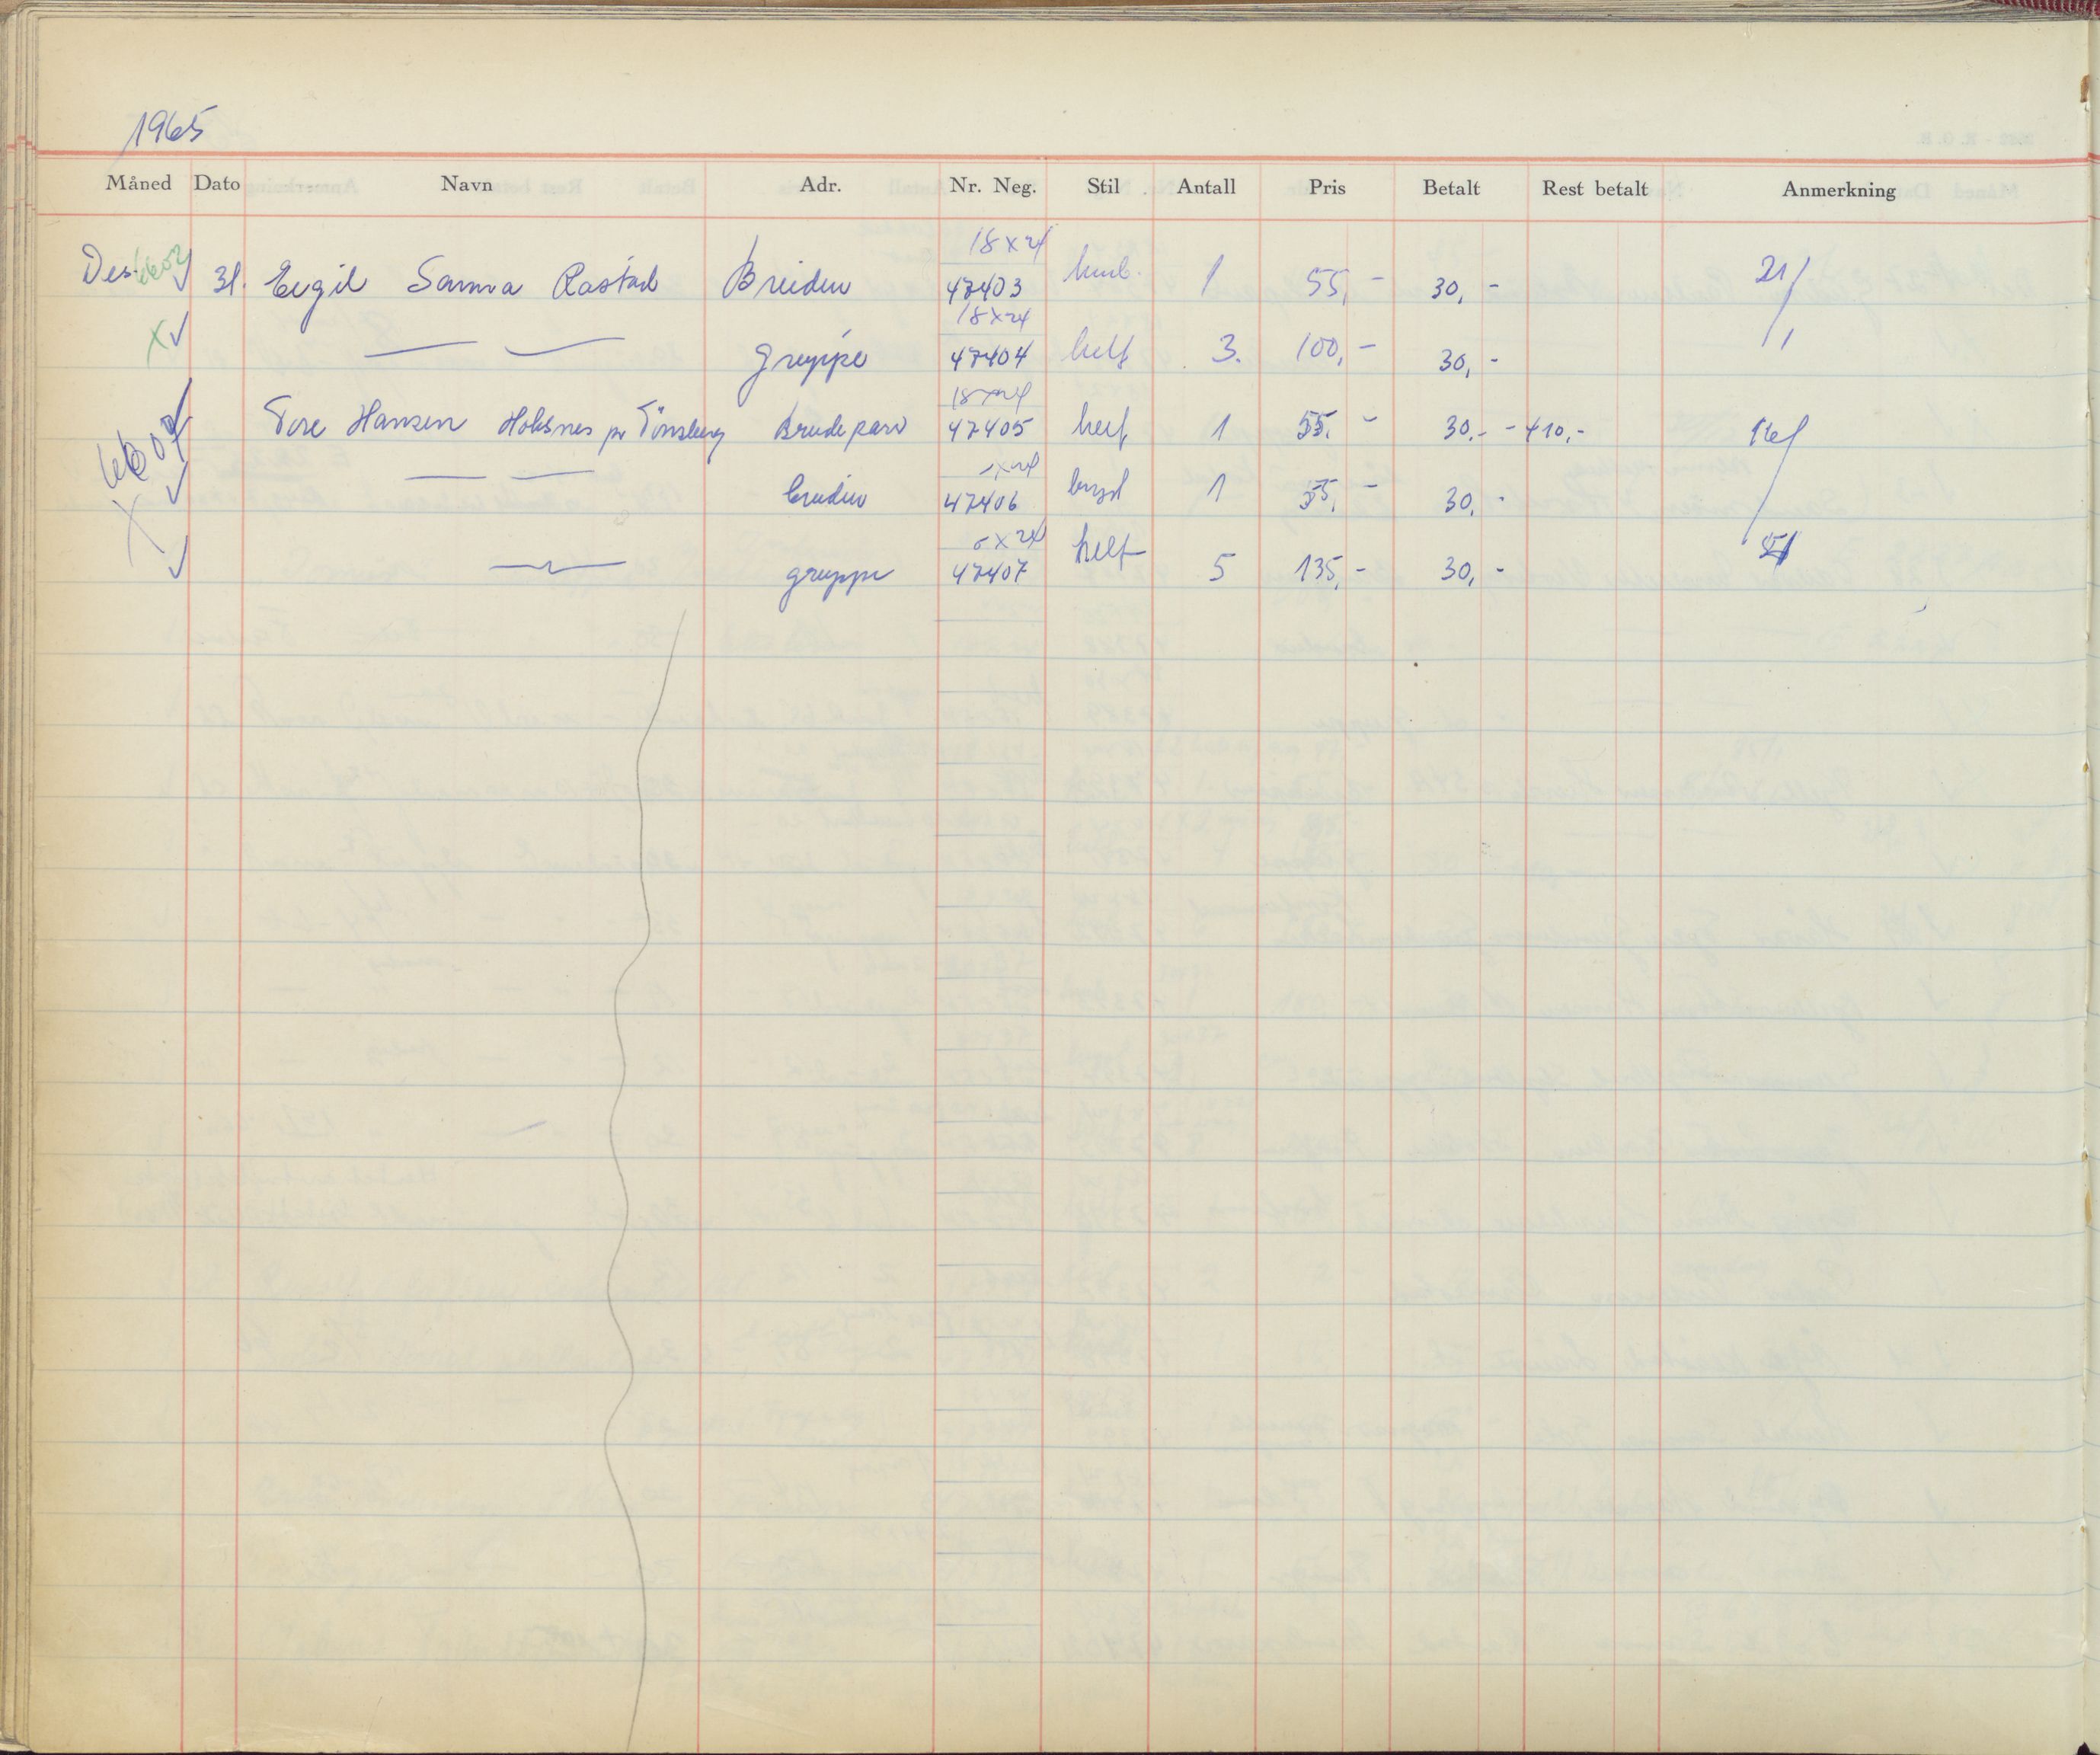 1965
Måned Dato Navn Adr. Nr. Neg. Stil Antall Pris Betalt Rest betalt Anmerkning
18 x 24
Des. 31. Eigil Sanva Rastad Bruden 47403 1 55,- 30,- 21/1
18x24
x gruppe 47404 helf 3. 100,- 30,-
18x24
6607 Tore Hansen Holsnes pr Tönsberg Brudepar 47405 helf 1 55,- 30.- 410,-
x24
x bruden 47406 bryst 1 55,- 30.-
x24
gruppe 47407 helf 5 135,- 30,-